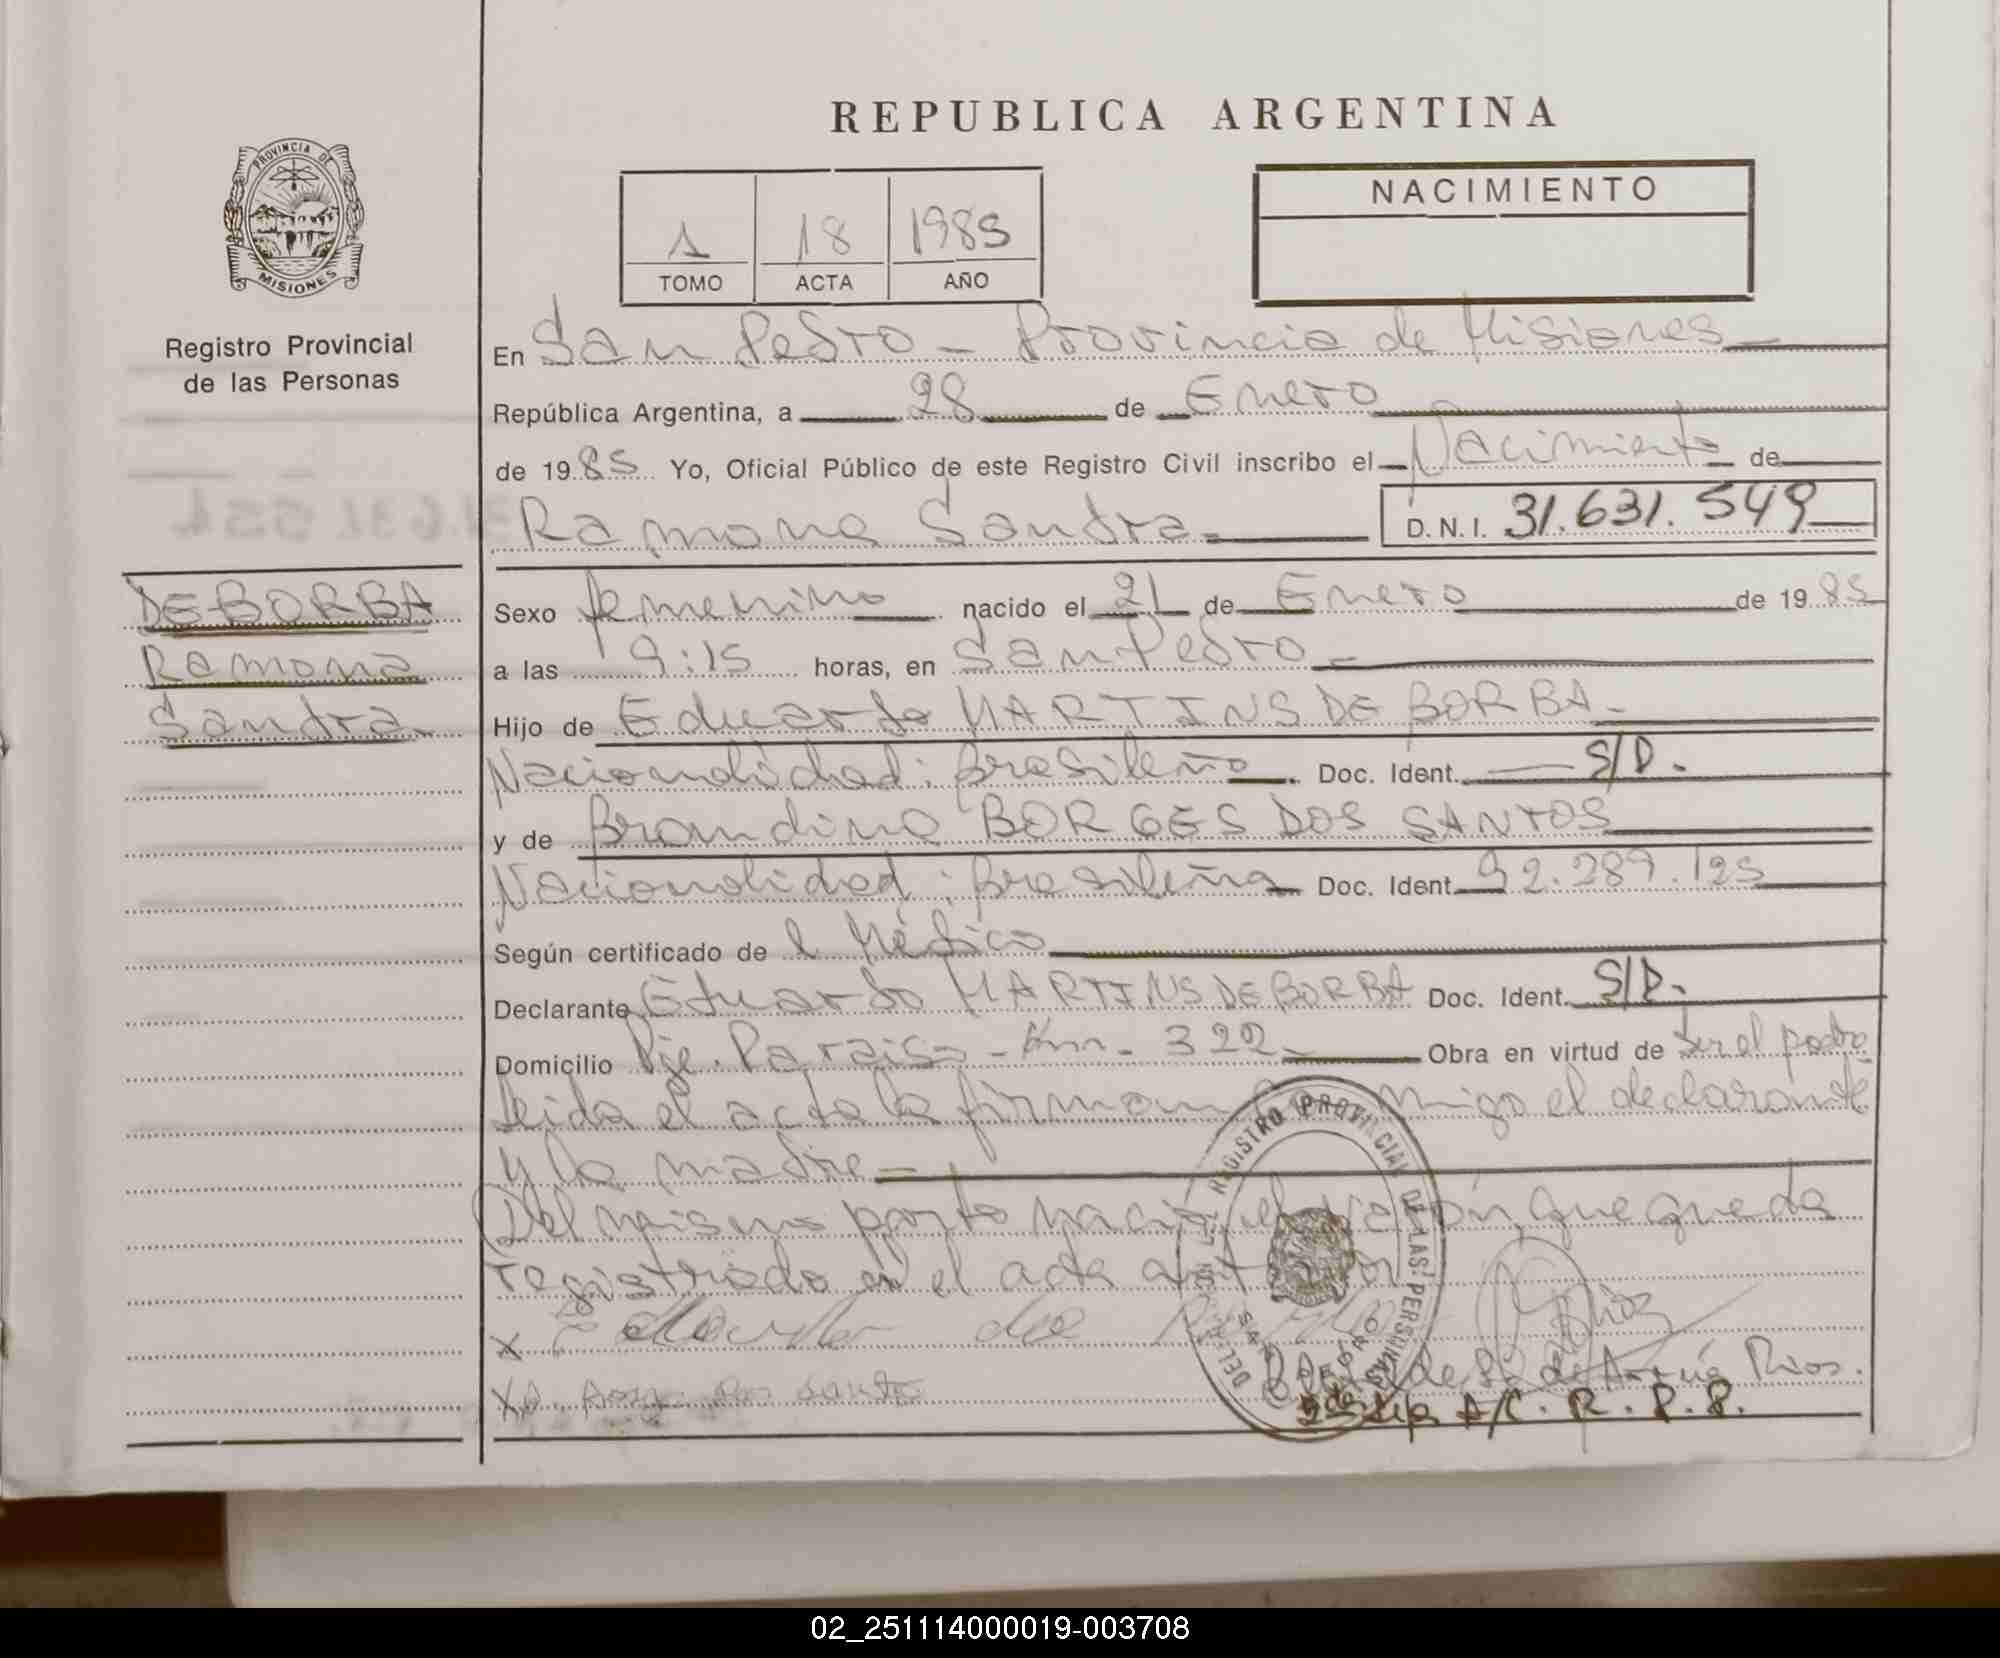 REPUBLICA ARGENTINA
PROVINCIA DE
MISIONES
Registro Provincial
de las Personas
NACIMIENTO
1 18 1985
TOMO ACTA AÑO
En San Pedro - Provincia de Misiones
República Argentina, a 28 de Enero
de 1985. Yo, Oficial Público de este Registro Civil inscribo el Nacimiento de
Ramona Sandra D.N.I. 31.631.549
DE BORBA
Ramona
Sandra
Sexo femenino nacido el 21 de Enero de 1985
a las 9:15 horas, en San Pedro
Hijo de Eduardo MARTINS DE BORBA
Nacionalidad: brasileño Doc. Ident. S/D.
y de Brandina BORGES DOS SANTOS
Nacionalidad: brasileña Doc. Ident. 92.289.125
Según certificado de l Médico
Declarante Eduardo MARTINS DE BORBA Doc. Ident. S/D.
Domicilio Pje. Paraiso - Km - 322 Obra en virtud de ser el padre
leida el acta la firman migo el declarante
y la madre
Del mismo parto nació el varón, que queda
registrado en el acta
REGISTRO PROVINCIAL DE LAS PERSONAS
X Eduardo de
X dos santo
de Rios.
A/C. R. P. P.
02_251114000019-003708